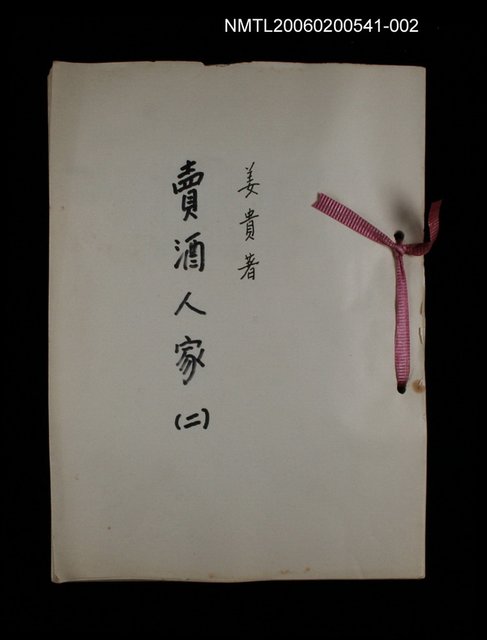 NMTL20060200541-002
姜貴著
賣酒人家(二)